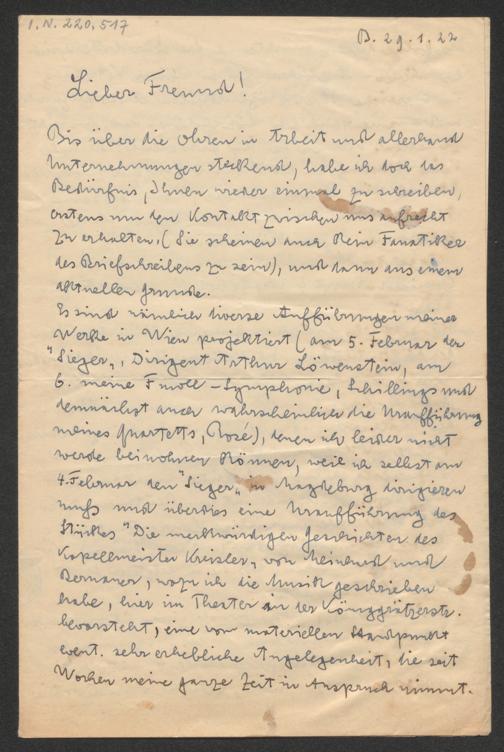 I.N. 220.517
B. 29.1.22
Lieber Freund!
Bis über die Ohren in Arbeit und allerhand
Unternehmungen steckend, habe ich doch das
Bedürfnis, Ihnen wieder einmal zu schreiben,
erstens um den Kontakt zwischen uns aufrecht
zu erhalten, (Sie scheinen auch kein Fanatiker
des Briefschreibens zu sein), und dann aus einem
aktuellen Grunde.
Es sind nämlich diverse Aufführungen meiner
Werke in Wien projektiert (am 5. Februar der
"Sieger", Dirigent Arthur Löwenstein, am
6. meine Fmoll-Symphonie, Schillings und
demnächst auch wahrscheinlich die Uraufführung
meines Quartetts, Rosé), denen ich leider nicht
werde beiwohnen können, weil ich selbst am
4. Februar den "Sieger" in Magdeburg dirigieren
muß und überdies eine Uraufführung des
Stückes "Die merkwürdigen Geschichten des
Kapellmeister Kreisler" von Meinhard und
Bernauer, wozu ich die Musik geschrieben
habe, hier im Theater in der Königgrätzerstr.
bevorsteht, eine vom materiellen Standpunkt
event. sehr erhebliche Angelegenheit, die seit
Wochen meine ganze Zeit in Anspruch nimmt.